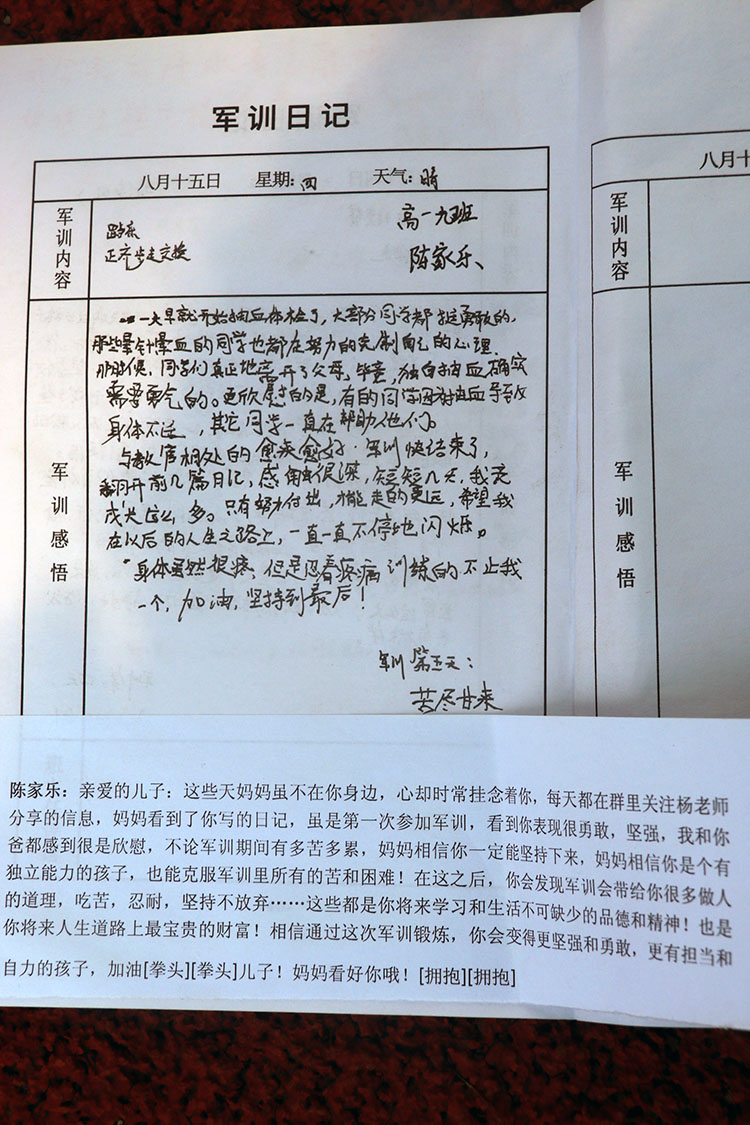 军训日记
八月十五日 星期:四 天气:晴
八月十
军训内容
踏步
正齐步走交换
高一九班
陈家乐、
军训内容
军训感悟
一大早就开始抽血体检了,大部分同学都挺勇敢的,
那些晕针晕血的同学也都在努力的克制自己的心理.
那时候,同学们真正地离开了父母,毕竟,独自抽血确实
需要勇气的。更欣慰的是,有的同学因为抽血导致
身体不适,其它同学一直在帮助他们。
与教官相处的愈来愈好.军训快结束了,
翻开前几篇日记,感触很深,短短几天,我竟
成长这么多。只有努力付出,才能走的更远,希望我
在以后的人生之路上,一直一直不停地闪烁。
身体虽然很疼,但是忍着疼痛训练的不止我
一个,加油,坚持到最后!
军训第五天:
苦尽甘来
军训感悟
陈家乐:亲爱的儿子:这些天妈妈虽不在你身边,心却时常挂念着你,每天都在群里关注杨老师
分享的信息,妈妈看到了你写的日记,虽是第一次参加军训,看到你表现很勇敢,坚强,我和你
爸都感到很是欣慰,不论军训期间有多苦多累,妈妈相信你一定能坚持下来,妈妈相信你是个有
独立能力的孩子,也能克服军训里所有的苦和困难!在这之后,你会发现军训会带给你很多做人
的道理,吃苦,忍耐,坚持不放弃……这些都是你将来学习和生活不可缺少的品德和精神!也是
你将来人生道路上最宝贵的财富!相信通过这次军训锻炼,你会变得更坚强和勇敢,更有担当和
自力的孩子,加油[拳头][拳头]儿子!妈妈看好你哦![拥抱][拥抱]